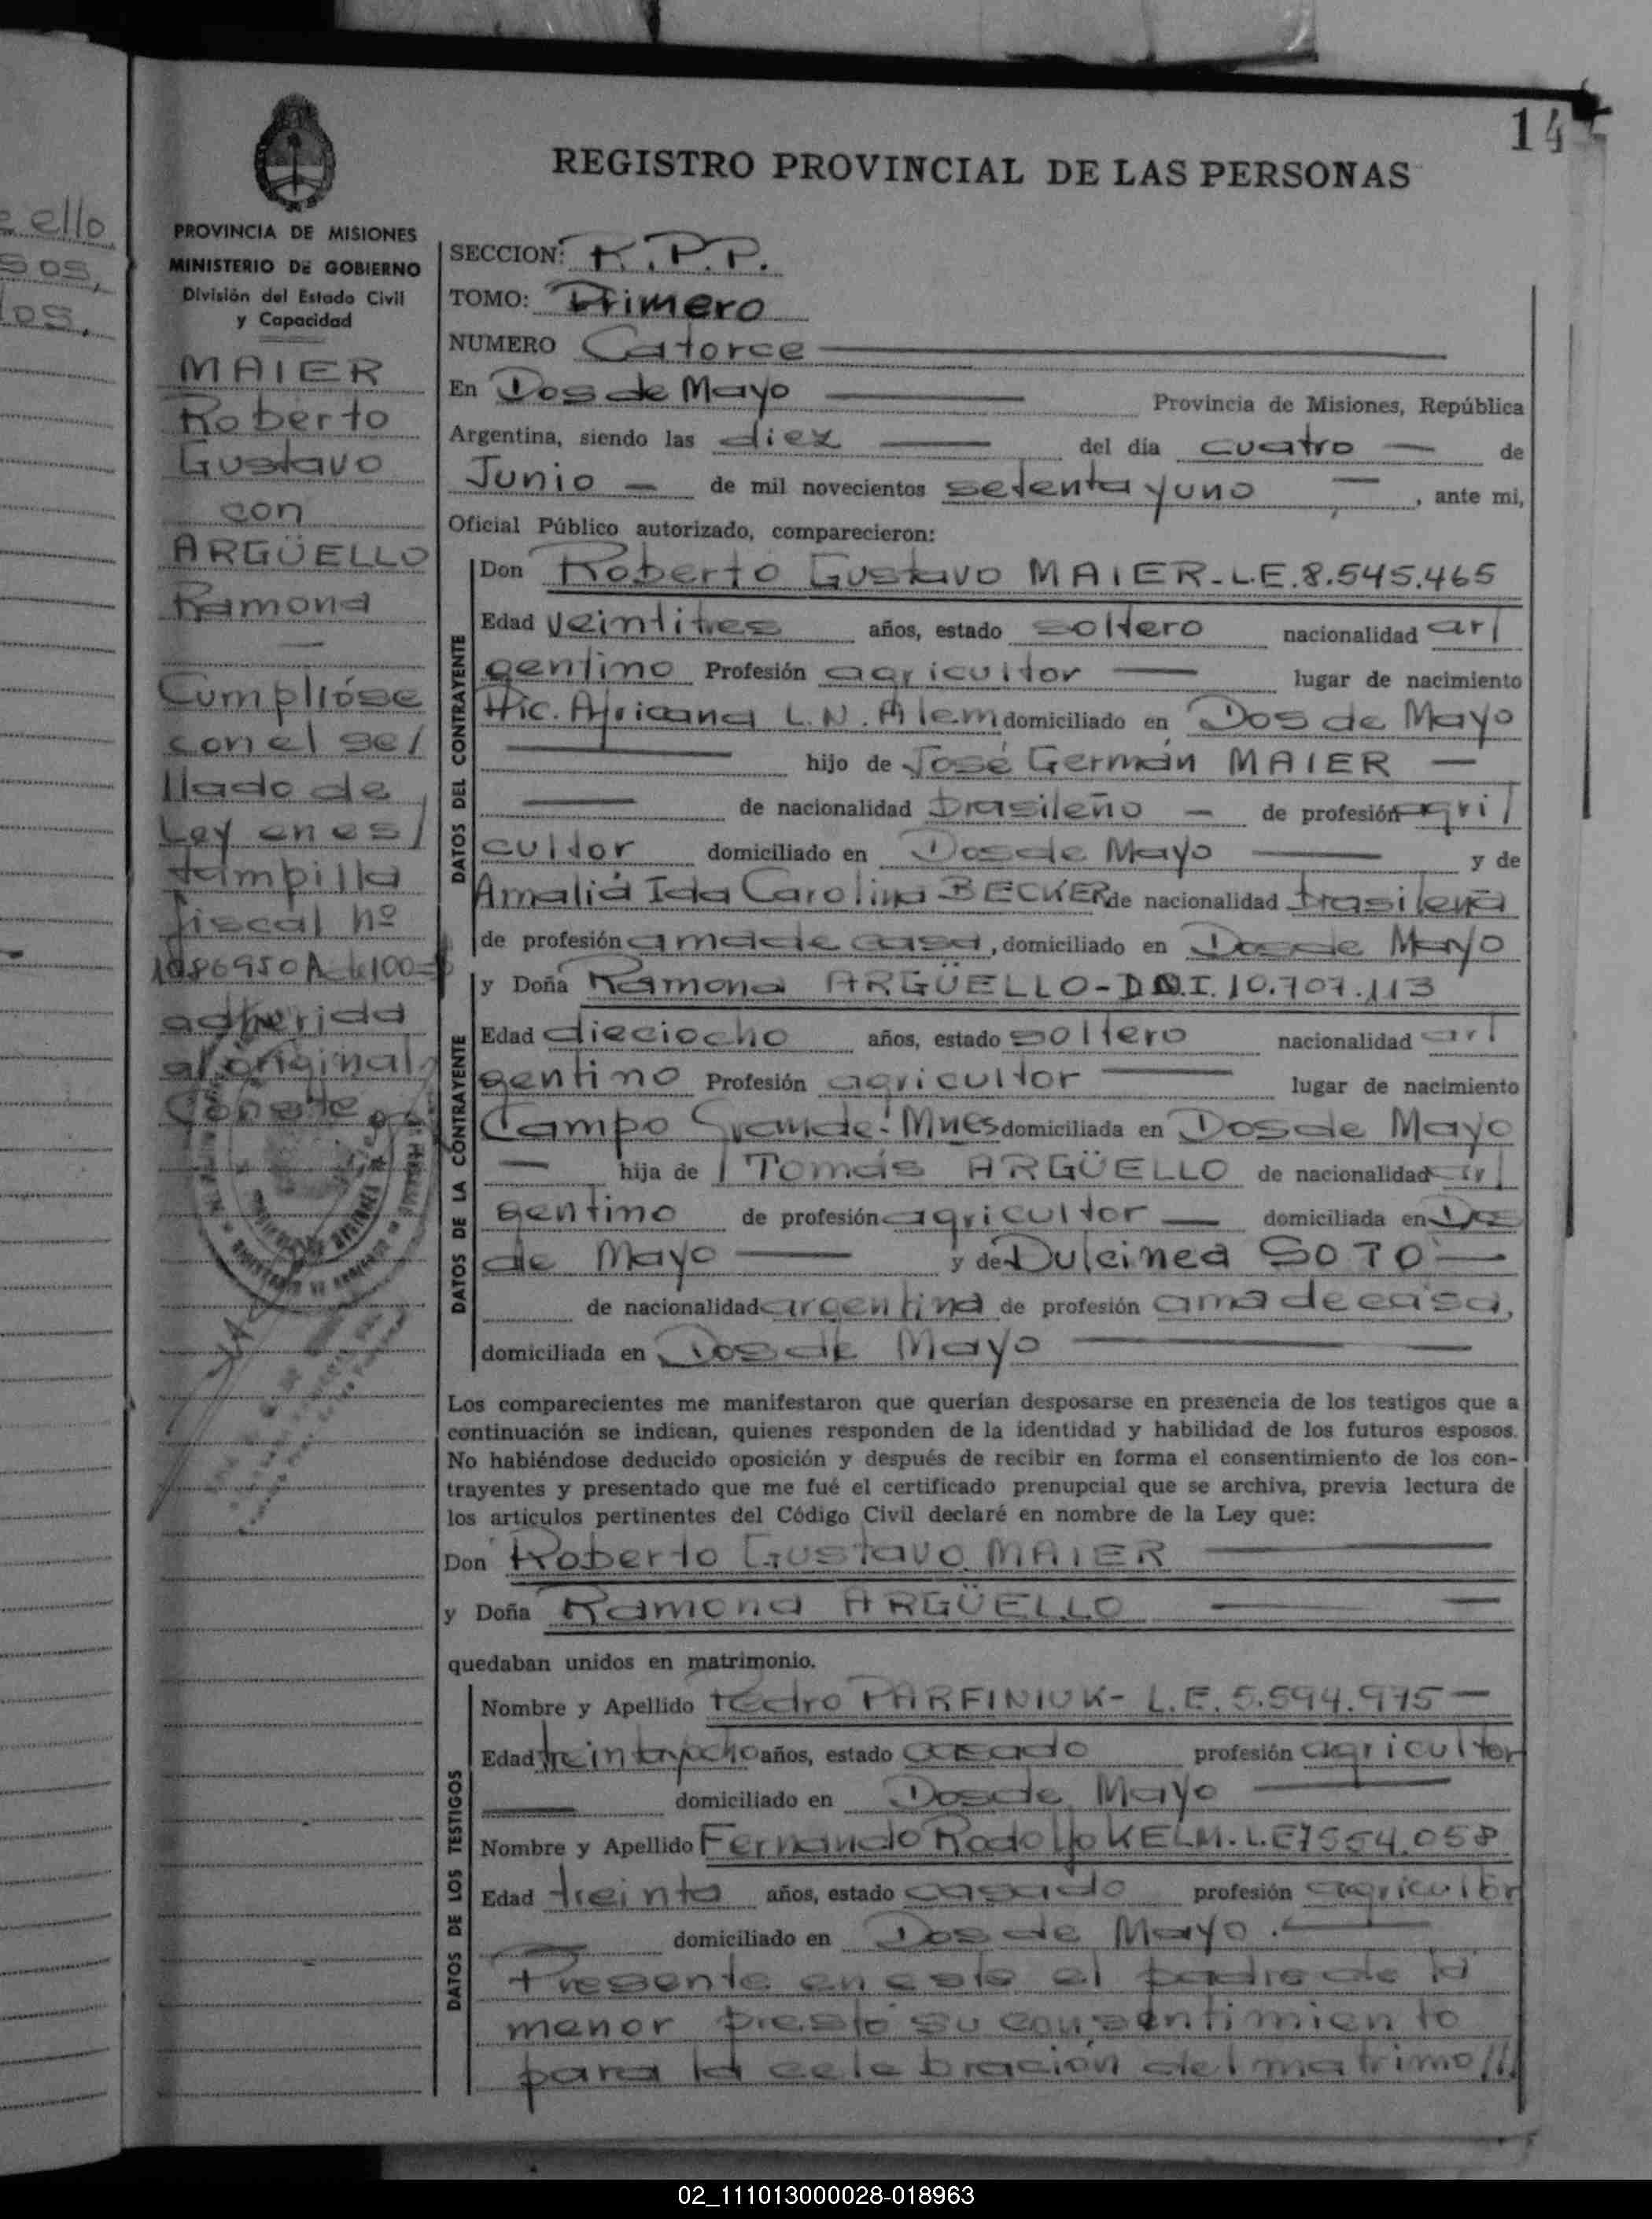 14
REGISTRO PROVINCIAL DE LAS PERSONAS
PROVINCIA DE MISIONES
MINISTERIO DE GOBIERNO
División del Estado Civil
y Capacidad
MAIER
Roberto
Gustavo
con
ARGÜELLO
Ramona
Cumplióse
con el se/
llado de
Ley en es/
tampilla
fiscal nº
1086950A de 100=
adherida
al original
Conste
ello
sos,
los,
SECCION: K.P.P.
TOMO: Primero
NUMERO Catorce
En Dos de Mayo Provincia de Misiones, República
Argentina, siendo las diez del día cuatro de
Junio de mil novecientos setenta y uno, ante mi,
Oficial Público autorizado, comparecieron:
DATOS DEL CONTRAYENTE
Don Roberto Gustavo MAIER-L.E.8.545.465
Edad veintitres años, estado soltero nacionalidad ar/
gentino Profesión agricultor lugar de nacimiento
Pic. Africana L.N. Alem domiciliado en Dos de Mayo
hijo de José Germán MAIER
de nacionalidad brasileño de profesión agri/
cultor domiciliado en Dos de Mayo y de
Amalia Ida Carolina BECKER de nacionalidad brasileña
de profesión ama de casa, domiciliado en Dos de Mayo
DATOS DE LA CONTRAYENTE
y Doña Ramona ARGÜELLO-D.N.I. 10.707.113
Edad dieciocho años, estado soltero nacionalidad ar/
gentino Profesión agricultor lugar de nacimiento
Campo Grande-Mnes domiciliada en Dos de Mayo
hija de Tomás ARGÜELLO de nacionalidad ar/
gentino de profesión agricultor domiciliada en Dos
de Mayo y de Dulcinea SOTO
de nacionalidad argentina de profesión ama de casa,
domiciliada en Dos de Mayo
Los comparecientes me manifestaron que querían desposarse en presencia de los testigos que a
continuación se indican, quienes responden de la identidad y habilidad de los futuros esposos.
No habiéndose deducido oposición y después de recibir en forma el consentimiento de los con-
trayentes y presentado que me fué el certificado prenupcial que se archiva, previa lectura de
los artículos pertinentes del Código Civil declaré en nombre de la Ley que:
Don Roberto Gustavo MAIER
y Doña Ramona ARGÜELLO
quedaban unidos en matrimonio.
DATOS DE LOS TESTIGOS
Nombre y Apellido Pedro PARFINIUK- L.E. 5.594.975
Edad treinta y ocho años, estado casado profesión agricultor
domiciliado en Dos de Mayo
Nombre y Apellido Fernando Rodolfo KELM. L.E 7554.058
Edad treinta años, estado casado profesión agricultor
domiciliado en Dos de Mayo.
Presente en este el padre de la
menor prestó su consentimiento
para la celebración del matrimo///
02_111013000028-018963